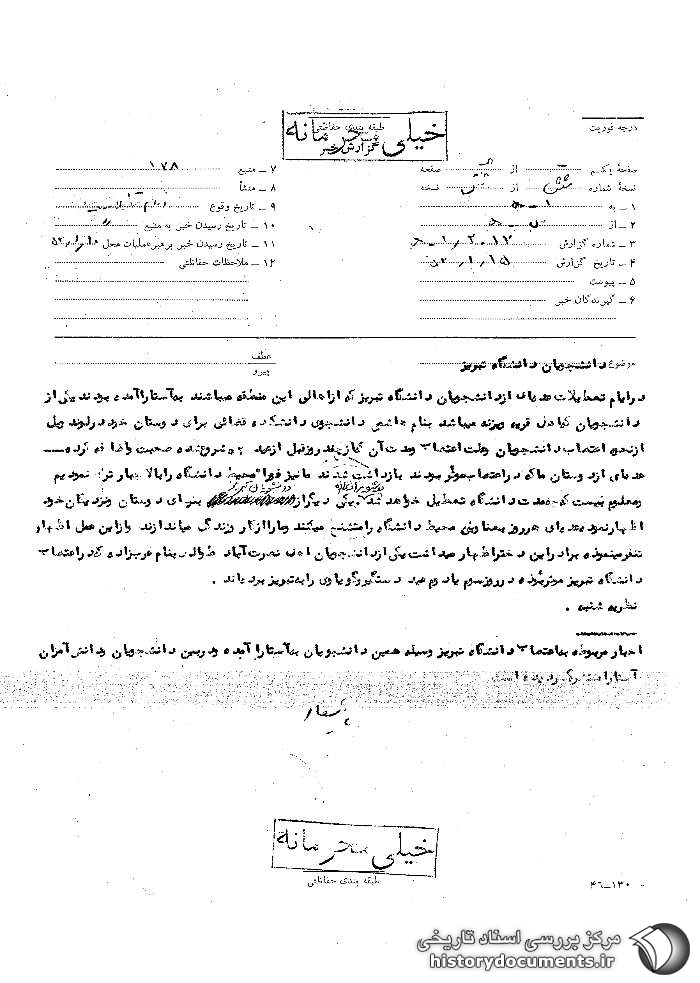 خیلی محرمانه
طبقه بندی حفاظتی
گزارش خبر
درجه فوریت
صفحهٔ یکم از صفحه
نسخهٔ شماره شش از نسخه
۱ ـ به
۲ ـ از
۳ ـ شماره گزارش
۴ ـ تاریخ گزارش ۵۲/۱/۱۵
۵ ـ پیوست
۶ ـ گیرندگان خبر
۷ ـ منبع ۱۷۸
۸ ـ منشأ
۹ ـ تاریخ وقوع
۱۰ ـ تاریخ رسیدن خبر به منبع
۱۱ ـ تاریخ رسیدن خبر برهبرعملیات محل
۱۲ ـ ملاحظات حفاظتی
موضوع دانشجویان دانشگاه تبریز
عطف
پیرو
در ایام تعطیلات عده‌ای از دانشجویان دانشگاه تبریز که از اهالی این منطقه میباشند به آستارا آمده بودند یکی از
دانشجویان که اهل قریه ویزنه میباشد بنام هاشمی دانشجوی دانشکده برای دوستان خود در لوندویل
از نحوه اعتصاب دانشجویان وعلت اعتصاب ومدت آن که از چند روز قبل از عید شروع شده صحبت واضافه کرده
عده‌ای از دوستان ما که در اعتصاب موثر بودند بازداشت شدند ما نیز فورا محیط دانشگاه را بالاجبار ترک نمودیم
ومعلوم نیست که چه مدت دانشگاه تعطیل خواهد شد یکی دیگر از دانشجویان برای دوستان ونزدیکان خود
اظهار نموده عده‌ای هر روز بعناوینی محیط دانشگاه را متشنج میکنند وما را از کار وزندگی میاندازند واز این عمل اظهار
تنفر مینموده برادر این دختر اظهار میداشت یکی از دانشجویان اهل نصرت آباد طوالش بنام عربزاده که در اعتصاب
دانشگاه تبریز موثر بوده در روز سوم یا دوم عید دستگیر وگویا وی را به تبریز برده‌اند .
نظریه شنبه .
اخبار مربوط به اعتصاب دانشگاه تبریز وسیله همین دانشجویان به آستارا آمده ودر بین دانشجویان ودانش آموزان
آستارا منتشر گردیده است
خیلی محرمانه
طبقه بندی حفاظتی
۴۶ـ۱۳۰
مرکز بررسی اسناد تاریخی
historydocuments.ir